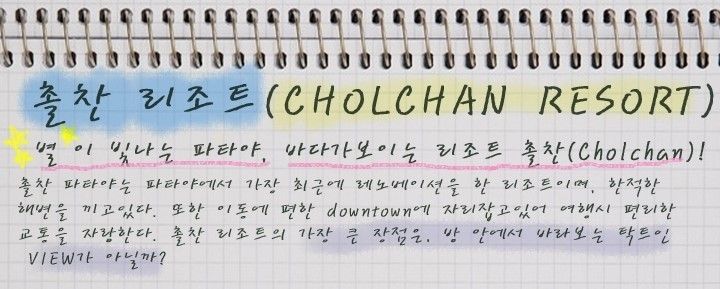 촐찬 리조트(CHOLCHAN RESORT)
별 이 빛나는 파타야, 바다가보이는 리조트 촐찬(Cholchan)!
촐찬 파타야는 파타야에서 가장 최근에 레노베이션을 한 리조트이며, 한적한
해변을 끼고있다. 또한 이동에 편한 downtown에 자리잡고있어 여행시 편리한
교통을 자랑한다. 촐찬 리조트의 가장 큰 장점은, 방 안에서 바라보는 탁트인
VIEW가 아닐까?